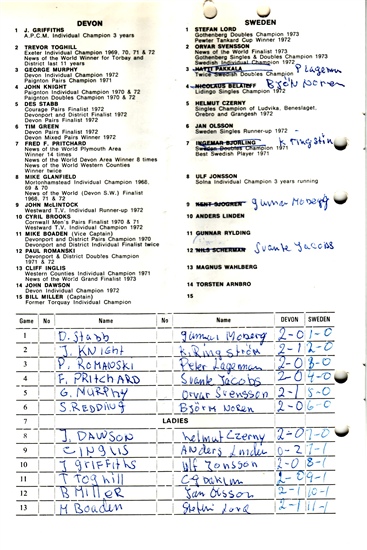 DEVON
1 J. GRIFFITHS
A.P.C.M. Individual Champion 3 years
2 TREVOR TOGHILL
Exeter Individual Champion 1969, 70, 71 & 72
News of the World Winner for Torbay and
District last 11 years
3 GEORGE MURPHY
Devon Individual Champion 1972
Paignton Pairs Champion 1971
4 JOHN KNIGHT
Paignton Individual Champion 1970 & 72
Paignton Doubles Champion 1970 & 72
5 DES STABB
Courage Pairs Finalist 1972
Devonport and District Finalist 1972
Devon Pairs Finalist 1972
6 TIM GREEN
Devon Pairs Finalist 1972
Devon Mixed Pairs Winner 1972
7 FRED F. PRITCHARD
News of the World Plymouth Area
Winner 14 times
News of the World Devon Area Winner 8 times
News of the World Western Counties
Winner twice
8 MIKE GLANFIELD
Mortonhamstead Individual Champion 1968,
69 & 70
News of the World (Devon S.W.) Finalist
1968, 71 & 72
9 JOHN McLINTOCK
Westward T.V. Individual Runner-up 1972
10 CYRIL BROOKS
Cornwall Men's Pairs Finalist 1970 & 71
Westward T.V. Individual Champion 1972
11 MIKE BOADEN (Vice Captain)
Devonport and District Pairs Champion 1970
Devonport and District Individual Finalist twice
12 PAUL ROMANSKI
Devonport & District Doubles Champion
1971 & 72
13 CLIFF INGLIS
Western Counties Individual Champion 1971
News of the World Grand Finalist 1973
14 JOHN DAWSON
Devon Individual Champion 1972
15 BILL MILLER (Captain)
Former Torquay Individual Champion
SWEDEN
1 STEFAN LORD
Gothenberg Doubles Champion 1973
Pewter Tankard Cup Winner 1972
2 ORVAR SVENSSON
News of the World Finalist 1973
Gothenberg Singles & Doubles Champion 1973
Swedish Individual Champion 1972
3 Plageman
Twice Swedish Doubles Champion
4 Björn Noren
Lidingo Singles Champion 1972
5 HELMUT CZERNY
Singles Champion of Ludvika, Beneslaget,
Orebro and Grangesh 1972
6 JAN OLSSON
Swedish Singles Runner-up 1972
7 INGEMAR BJORLING K Ringström
Swedish Doubles Champion 1971
Best Swedish Player 1971
8 ULF JONSSON
Solna Individual Champion 3 years running
9 KENT SJOGREN Gunnar Moberg
10 ANDERS LINDEN
11 GUNNAR RYLDING
12 NILS SCHERMAN Svante Jacobs
13 MAGNUS WAHLBERG
14 TORSTEN ARNBRO
15
Game No Name No Name DEVON SWEDEN
1 D. Stabb Gunnar Moberg 2-0 1-0
2 J. KNIGHT K. Ringström 2-1 2-0
3 P. ROMANSKI Peter Lageman 2-0 3-0
4 F. PRITCHARD Svante Jacobs 2-0 4-0
5 G. MURPHY Orvar Svensson 2-1 5-0
6 S. REDDING Björn Noren 2-0 6-0
7 LADIES
8 J. DAWSON Helmut Czerny 2-0 7-0
9 C INGLIS Anders Linden 0-2 7-1
10 J griffiths Ulf Jonsson 2-0 8-1
11 T Toghill 2-0 9-1
12 B MillER Jan Olsson 2-1 10-1
13 M Boaden Stefan Lord 2-1 11-1